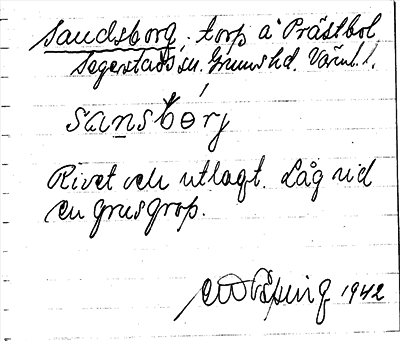 Sandsborg, torp å Prästbol
Segerstads sn. Grums hd. Värml.
sansbørj
Rivet och utlagt. Låg vid
en grusgrop.
1942